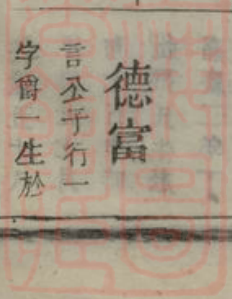 德富
言公子行一
字爵一生於